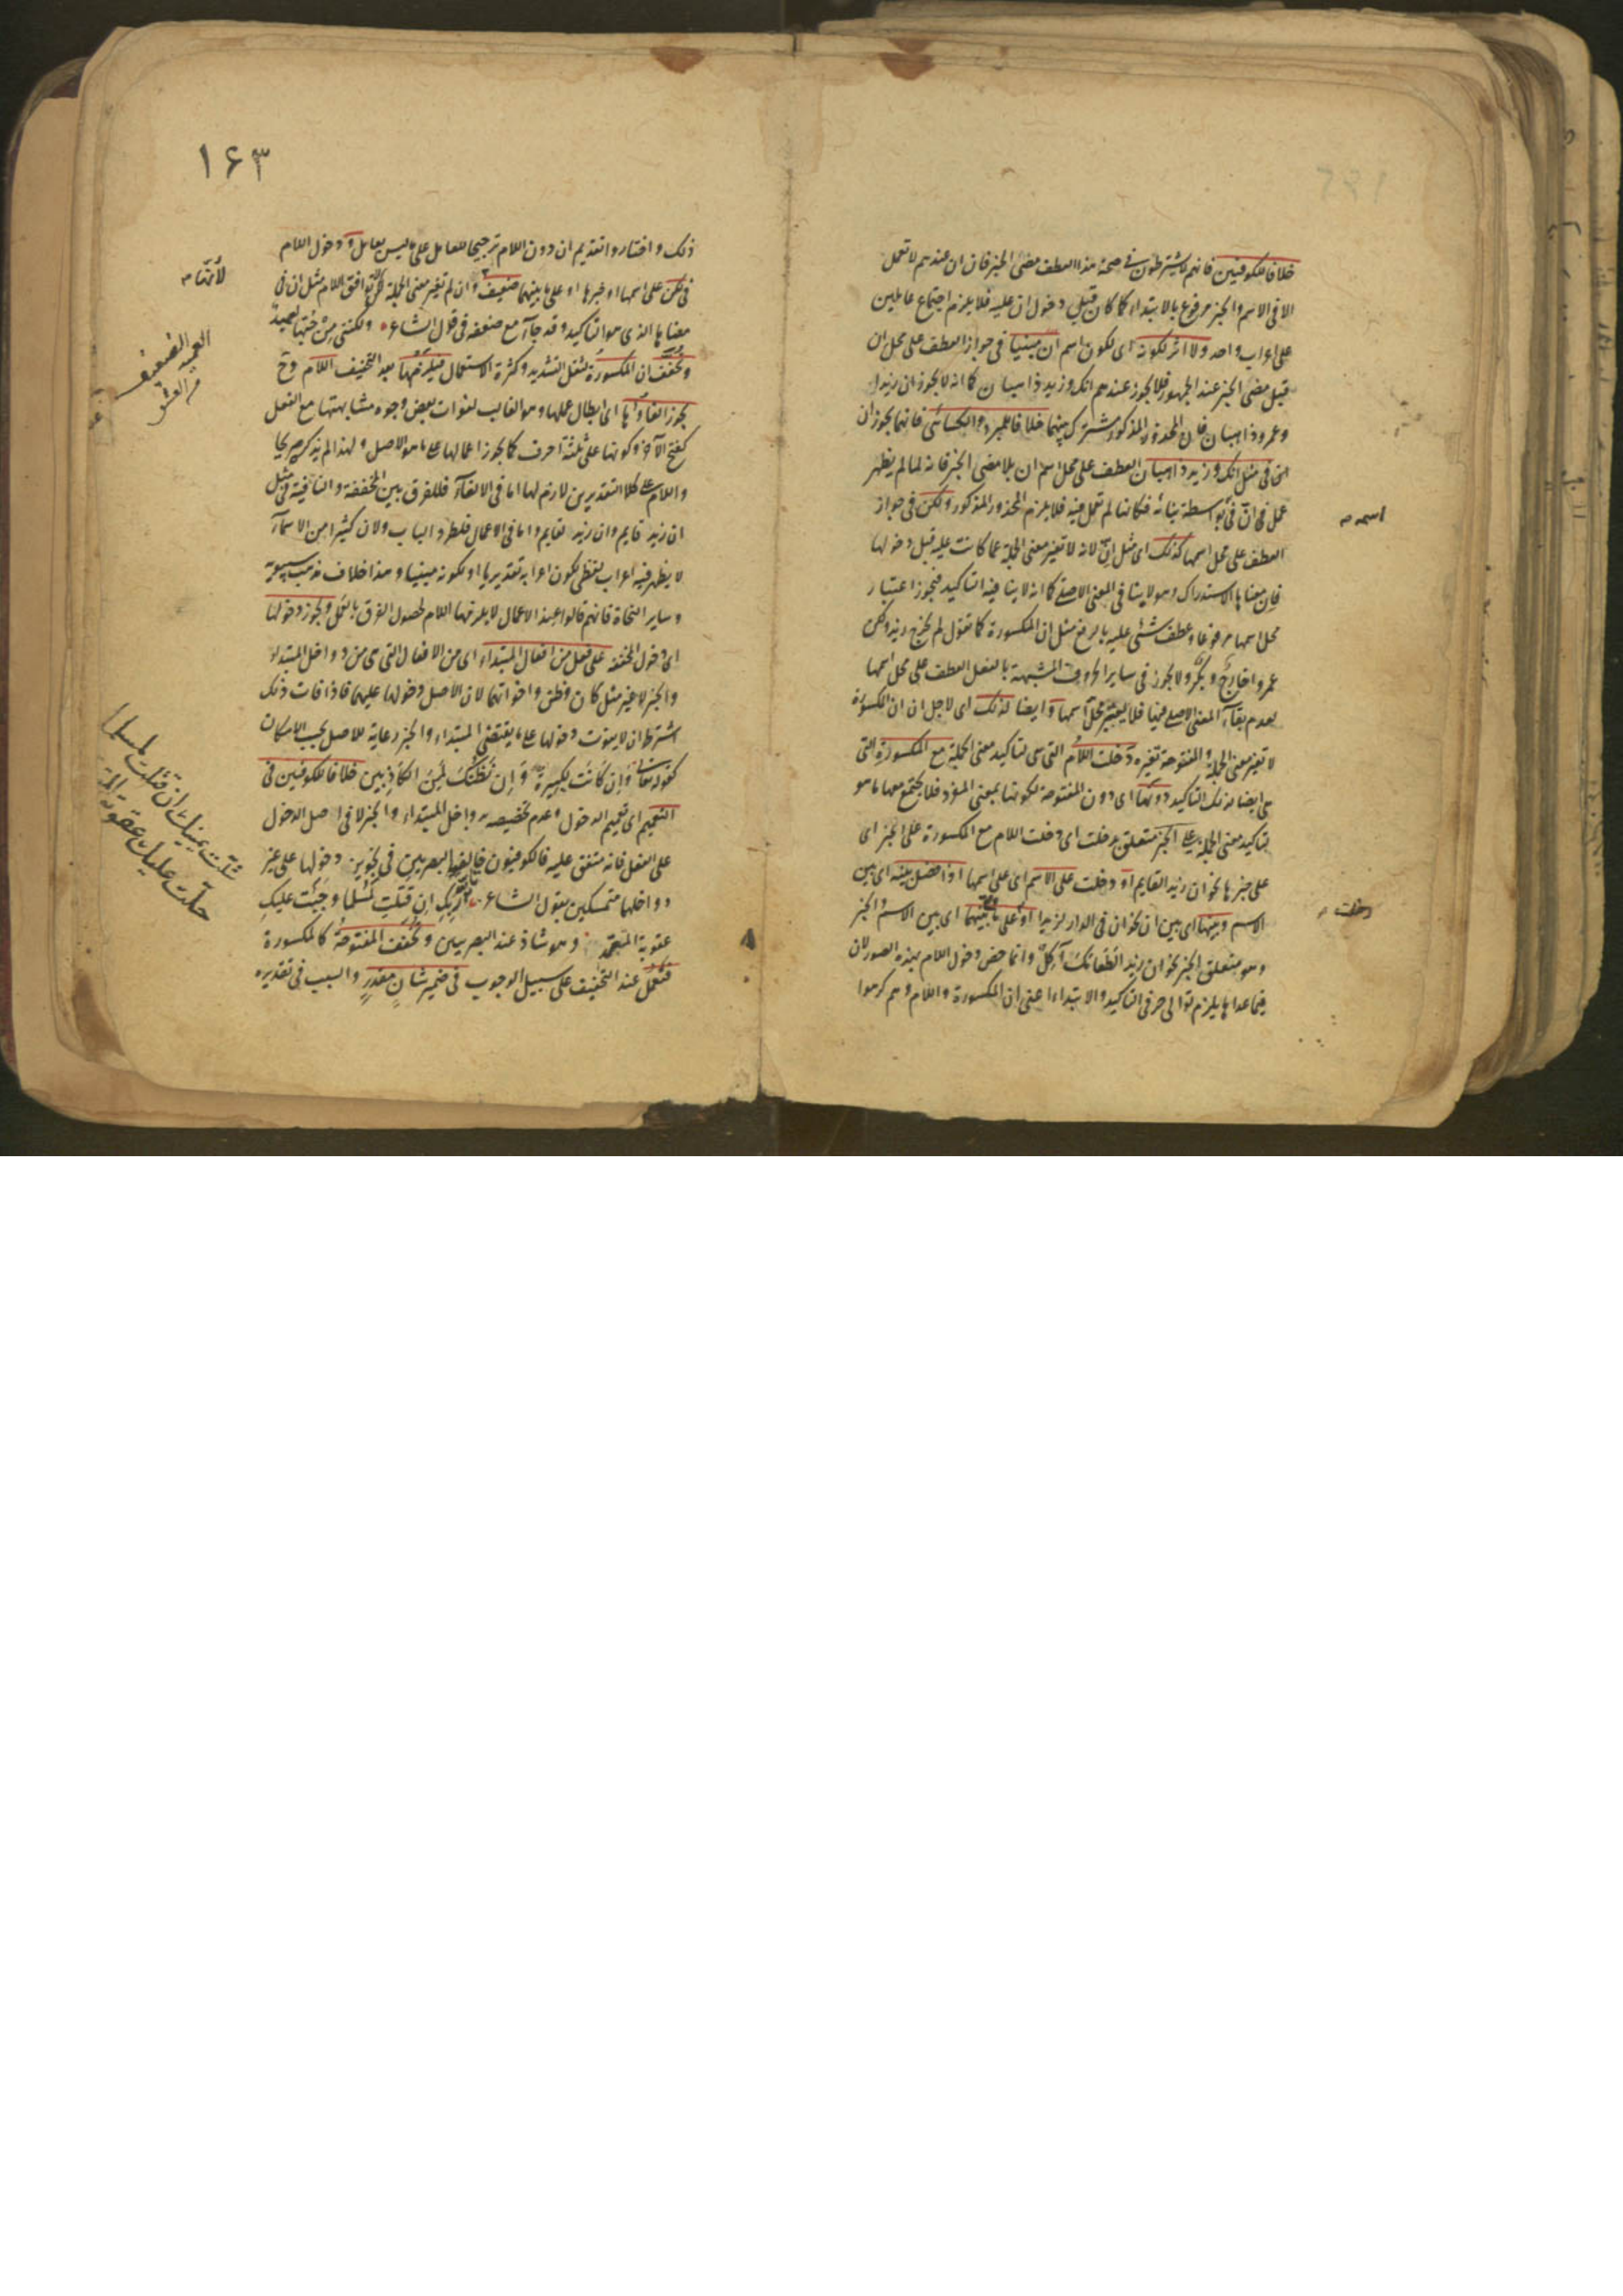 خلافا للكوفيين فانهم لا يشترطون فى صحة هذا العطف مضى الخبر فان ان عندهم لا تعمل
الا فى الاسم والخبر مرفوع بالابتداء كما كان قبل دخول ان عليه فلا يلزم اجتماع عاملين
على اعراب واحد ولا اثر لكونه اى لكون اسم ان مبنيا فى جواز العطف على محل ان
قبل مضى الخبر عند الجمهور فلا يجوز عندهم انك وزيد ذاهبان كما انه لا يجوز ان زيدا
وعمرو ذاهبان فان المحذور المذكور مشترك بينهما خلافا للمبرد والكسائى فانهما يجوزان
فى مثل انك وزيد ذاهبان العطف على محل اسم ان بلا مضى الخبر فانه لما لم يظهر
عمل ان فى بواسطة بنائه فكانها لم تعمل فيه فلا يلزم المحذور المذكور ولكن فى جواز
اسمه
العطف على محل اسمها كذلك اى مثل ان لانه لا تغير معنى الجملة عما كانت عليه قبل دخولها
فان معناها الاستدراك وهو لا ينافى المعنى الاصلى كما انه لا ينافيه التاكيد فيجوز اعتبار
محل اسمها مرفوعا وعطف شئ عليه بالرفع مثل ان المكسورة كما تقول لم يخرج زيد ولكن
عمروا خارج وبكر ولا يجوز فى ساير الحروف المشبهة بالفعل العطف على محل اسمها
لعدم بقاء المعنى الاصلى فيها فلا يعتبر محل اسمها وايضا لذلك اى لاجل ان ان المكسورة
لا تغير معنى الجملة والمفتوحة تغيره دخلت اللام التى هى لتاكيد معنى الجملة مع المكسورة التى
هى ايضا لذلك التاكيد دونها اى دون المفتوحة لكونها بمعنى المفرد فلا يجتمع معها ما هو
لتاكيد معنى الجملة على الخبر متعلق بدخلت اى دخلت اللام مع المكسورة على الخبر اى
على خبرها نحو ان زيد القايم او دخلت على الاسم اى على اسمها اذا فصل بينه اى بين
الاسم وبينها اى بين ان نحو ان فى الدار لزيدا او على ما بينهما اى بين الاسم والخبر
دخلت
وهو متعلق الخبر نحو ان زيد الطعامك آكل وانما خص دخول اللام بهذه الصور لان
فيما عداها يلزم توالى حرفى التاكيد والابتداء اعنى ان المكسورة واللام وهم كرهوا
١٦٣
ذلك واختاروا تقديم ان دون اللام ترجيحا للعامل على ما ليس بعامل ودخول اللام
فى لكن على اسمها او خبرها او على ما بينهما ضعيف وان لم تغير معنى الجملة لانه لم يوافق اللام مثل ان فى
معناها الذى هو التاكيد وقد جاء مع ضعفه فى قول الشاعر ولكننى من حبها لعميد
وتخفف ان المكسورة لثقل التشديد وكثرة الاستعمال فيلزمها بعد التخفيف اللام وح
يجوز الغاؤها اى ابطال عملها وهو الغالب لفوات بعض وجوه مشابهتها مع الفعل
كفتح الآخر وكونها على ثلثة احرف كما يجوز اعمالها على ما هو الاصل ولهذا لم يذكر صريحا
واللام على كلا التقديرين لازم لها اما فى الالغاء فللفرق بين المخففة والنافية فى مثل
ان زيد قايم وان زيد لقايم واما فى الاعمال فلطرد الباب ولان كثيرا من الاسماء
لا يظهر فيه اعراب لفظى لكون اعرابه تقديريا او لكونه مبنيا وهذا خلاف مذهب سيبويه
وساير النحاة فانهم قالوا عند الاعمال لا يلزمها اللام لحصول الفرق بالعمل ويجوز دخولها
اى دخول المخففة على فعل من افعال المبتداء اى من الافعال التى هى من دواخل المبتداء
والخبر لا غير مثل كان وظن واخواتهما لان الاصل دخولها عليهما فاذا فات ذلك
اشترط ان لا يفوت دخولها على ما يقتضى المبتداء والخبر رعاية للاصل بحسب الامكان
كقوله تعالى وَاِن كَانَت لكبيرة وَاِن نَظُنُّكَ لَمِنَ الكَاذِبين خلافا للكوفيين فى
التعميم اى تعميم الدخول وعدم تخصيصه بدواخل المبتداء والخبر لا فى اصل الدخول
على الفعل فانه متفق عليه فالكوفيون خالفوا البصريين فى تجويز دخولها على غير
دواخلها متمسكين بقول الشاعر بالله ربك ان قتلت لمسلما وجبت عليك
عقوبة المتعمد وهو شاذ عند البصريين وتخفف المفتوحة كالمكسورة
فتعمل عند التخفيف على سبيل الوجوب فى ضمير شان مقدر والسبب فى تقديره
شلت يمينك ان قتلت لمسلما
حلت عليك عقوبة